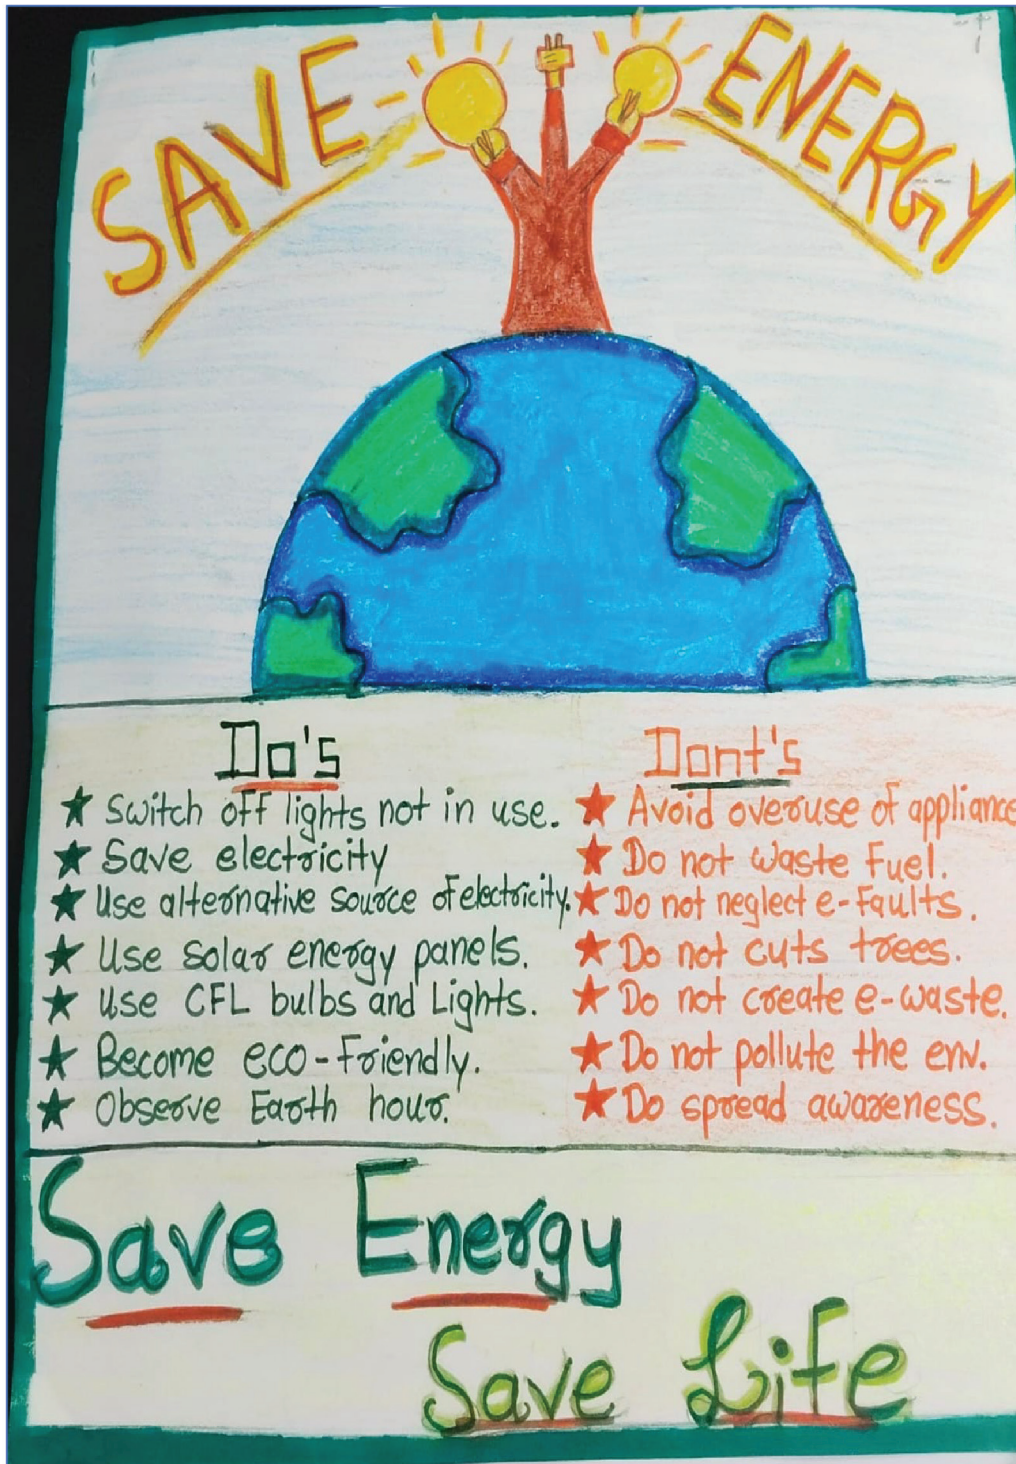 SAVE ENERGY
Do's
Switch off lights not in use.
Save electricity
Use alternative source of electricity.
Use solar energy panels.
Use CFL bulbs and Lights.
Become eco-Friendly.
Observe Earth hour.
Dont's
Avoid overuse of appliance
Do not waste Fuel.
Do not neglect e-Faults.
Do not cuts trees.
Do not create e-waste.
Do not pollute the env.
Do spread awareness.
Save Energy
Save Life